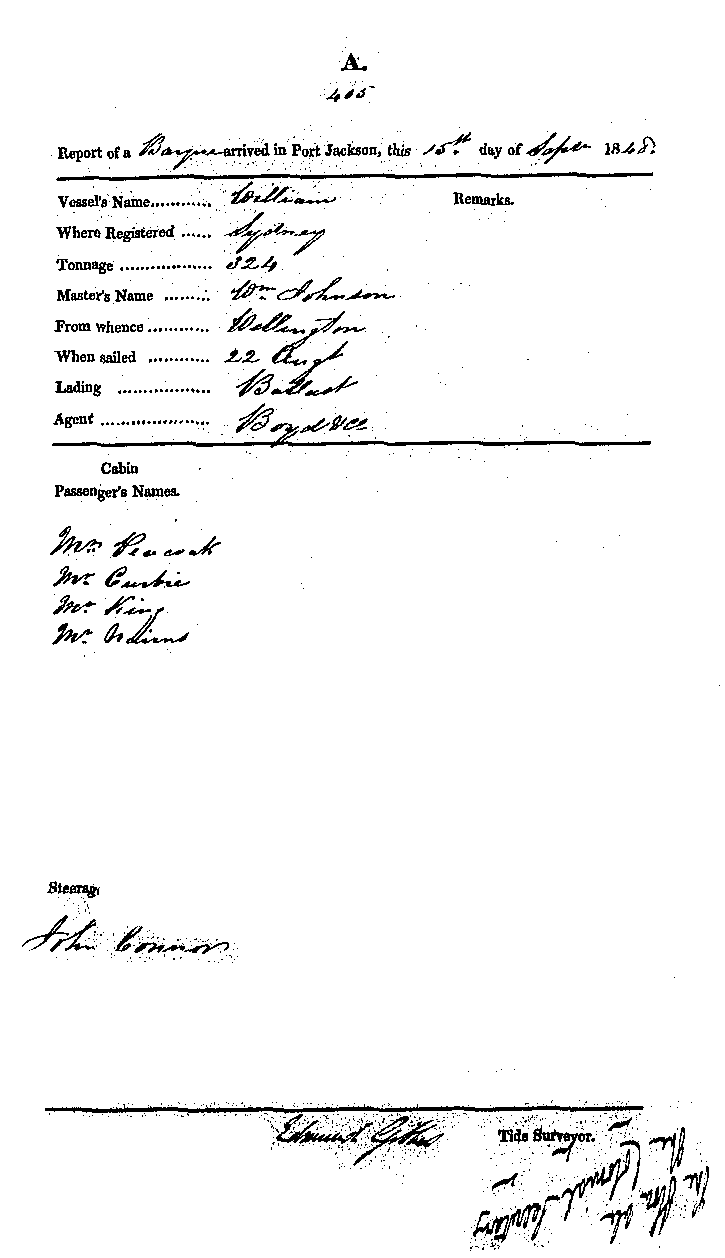 A.
405
Report of a Barque arrived in Port Jackson, this 15th day of Septr 1848.
Vessel's Name............ William
Remarks.
Where Registered ...... Sydney
Tonnage .................. 324
Master's Name ......... Wm Johnson
From whence............ Wellington
When sailed ............ 22 Augt
Lading .................. Ballast
Agent ..................... Boyd & Co
Cabin
Passenger's Names.
Peacock
Mr Curtis
Mr King
Mr Nairns
Steerage
John Connor
Edmund Tide Surveyor.
The Hon. the
The Colonial Secretary